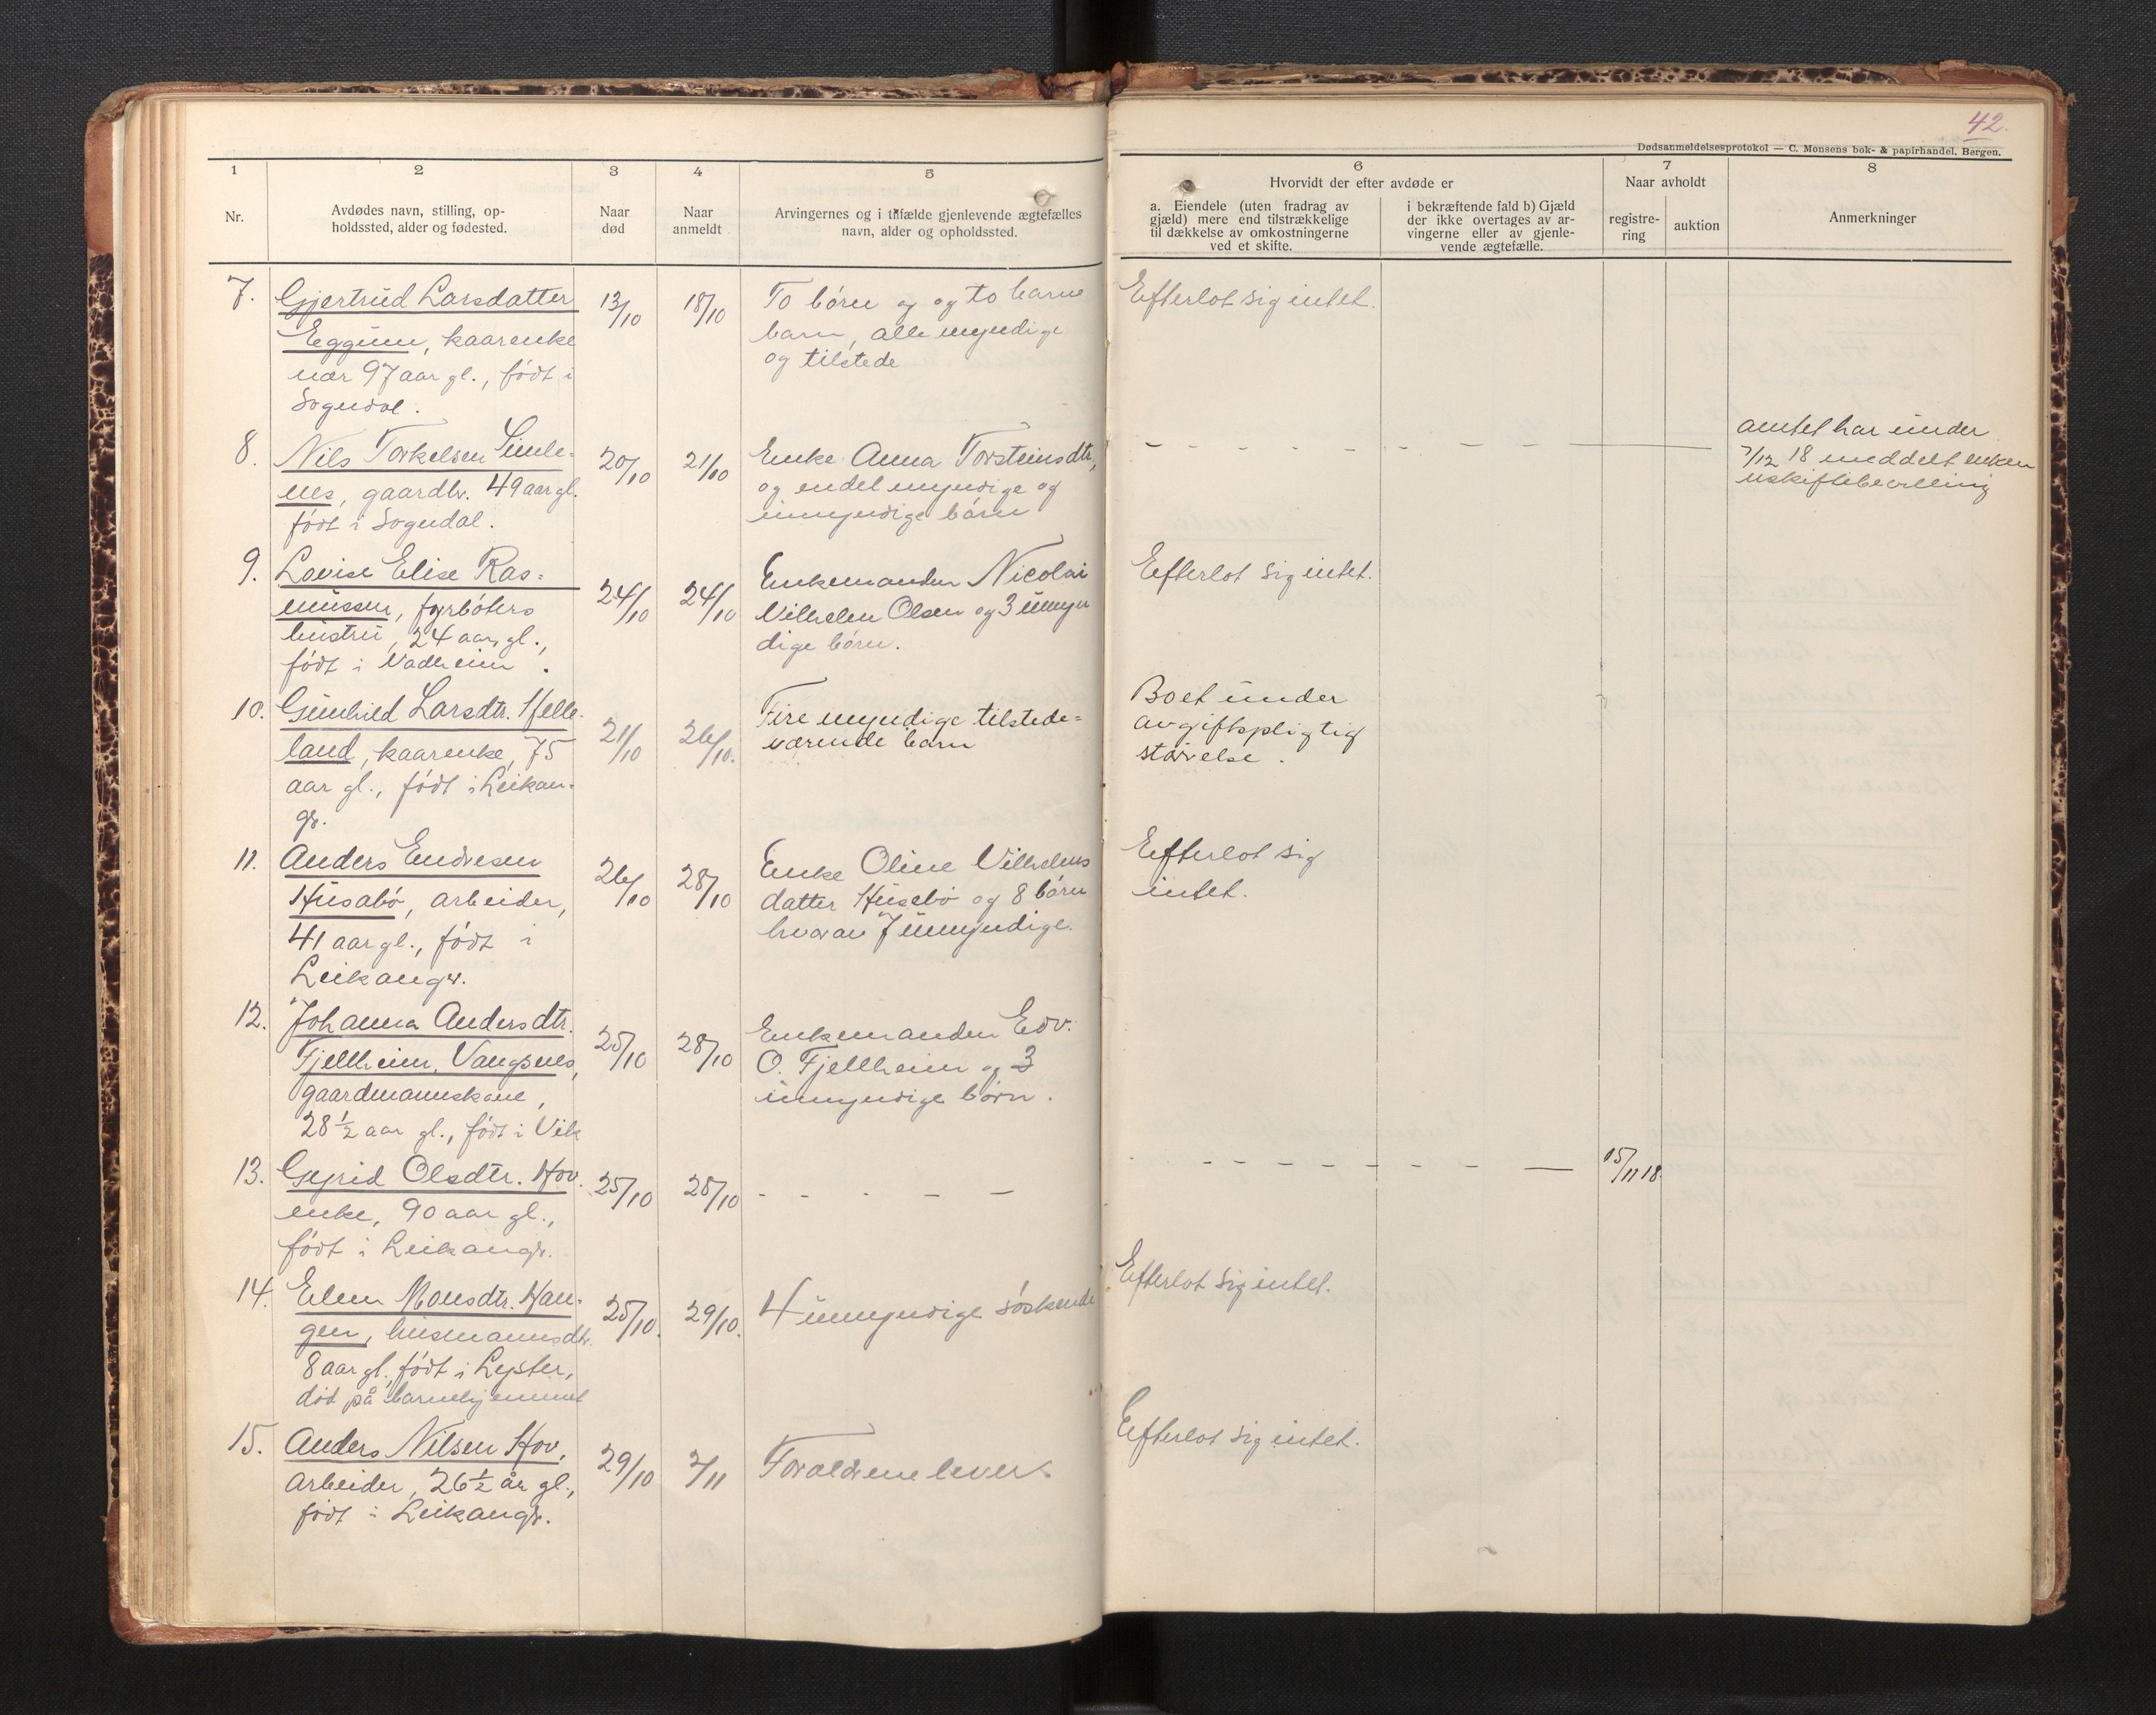 42.
Dødsanmeldelsesprotokol — C. Monsens bok- & papirhandel, Bergen.
1
2
3
4
5
6
7
8
Nr.
Avdødes navn, stilling, op-
holdssted, alder og fødested.
Naar
død
Naar
anmeldt
Arvingernes og i tilfælde gjenlevende ægtefælles
navn, alder og opholdssted.
Hvorvidt der efter avdøde er
a. Eiendele (uten fradrag av
gjæld) mere end tilstrækkelige
til dækkelse av omkostningerne
ved et skifte.
i bekræftende fald b) Gjæld
der ikke overtages av ar-
vingerne eller av gjenle-
vende ægtefælle.
Naar avholdt
registre-
ring
auktion
Anmerkninger
7.
Gjertrud Larsdatter
Eggum, kaarenke
nær 97 aar gl., født i
Sogndal.
13/10
18/10
To børn og og to barne
barn, alle myndige
og tilstede
Efterlot sig intet.
8.
Nils Torkelsen Simle-
nes, gaardbr. 49 aar gl.
født i Sogndal.
20/10
21/10
Enke Anna Torsteinsdtr,
og endel myndige og
umyndige børn
- - - - - - -
amtet har under
7/12 18 meddelt enken
uskiftebevilling
9.
Lovise Elise Ras-
mussen, fyrbøters
hustru, 24 aar gl.,
født i Vadheim.
24/10
24/10
Enkemanden Nicolai
Vilhelm Olsen og 3 umyn
dige børn.
Efterlot sig intet.
10.
Gunhild Larsdtr. Helle-
land, kaarenke, 75
aar gl., født i Leikan-
gr.
21/10
26/10.
Fire myndige tilstede-
værende børn
Boet under
avgiftspligtig
størrelse.
11.
Anders Endresen
Husabø, arbeider,
41 aar gl., født i
Leikangr.
26/10
28/10
Enke Oline Vilhelms
datter Husebø og 8 børn
hvorav 7 umyndige.
Efterlot sig
intet.
12.
Johanna Andersdtr.
Fjellheim, Vangsnes,
gaardmannskone,
28 1/2 aar gl., født i Vik
25/10
28/10
Enkemanden Edv.
O. Fjellheim og 3
umyndige børn.
13.
Gyrid Olsdtr. Hov.
enke, 90 aar gl.,
født i Leikangr.
25/10
28/10
- - - - -
- - - - - - - -
15/11 18.
14.
Elen Monsdtr. Hau-
gen, husmannsdtr.
8 aar gl., født i Lyster,
død på barnehjemmet
25/10.
29/10.
4 umyndige søskende
Efterlot sig intet.
15.
Anders Nilsen Hov,
arbeider, 26 1/2 år gl.,
født i Leikangr.
29/10
2/11
Forældrene lever
Efterlot sig intet.